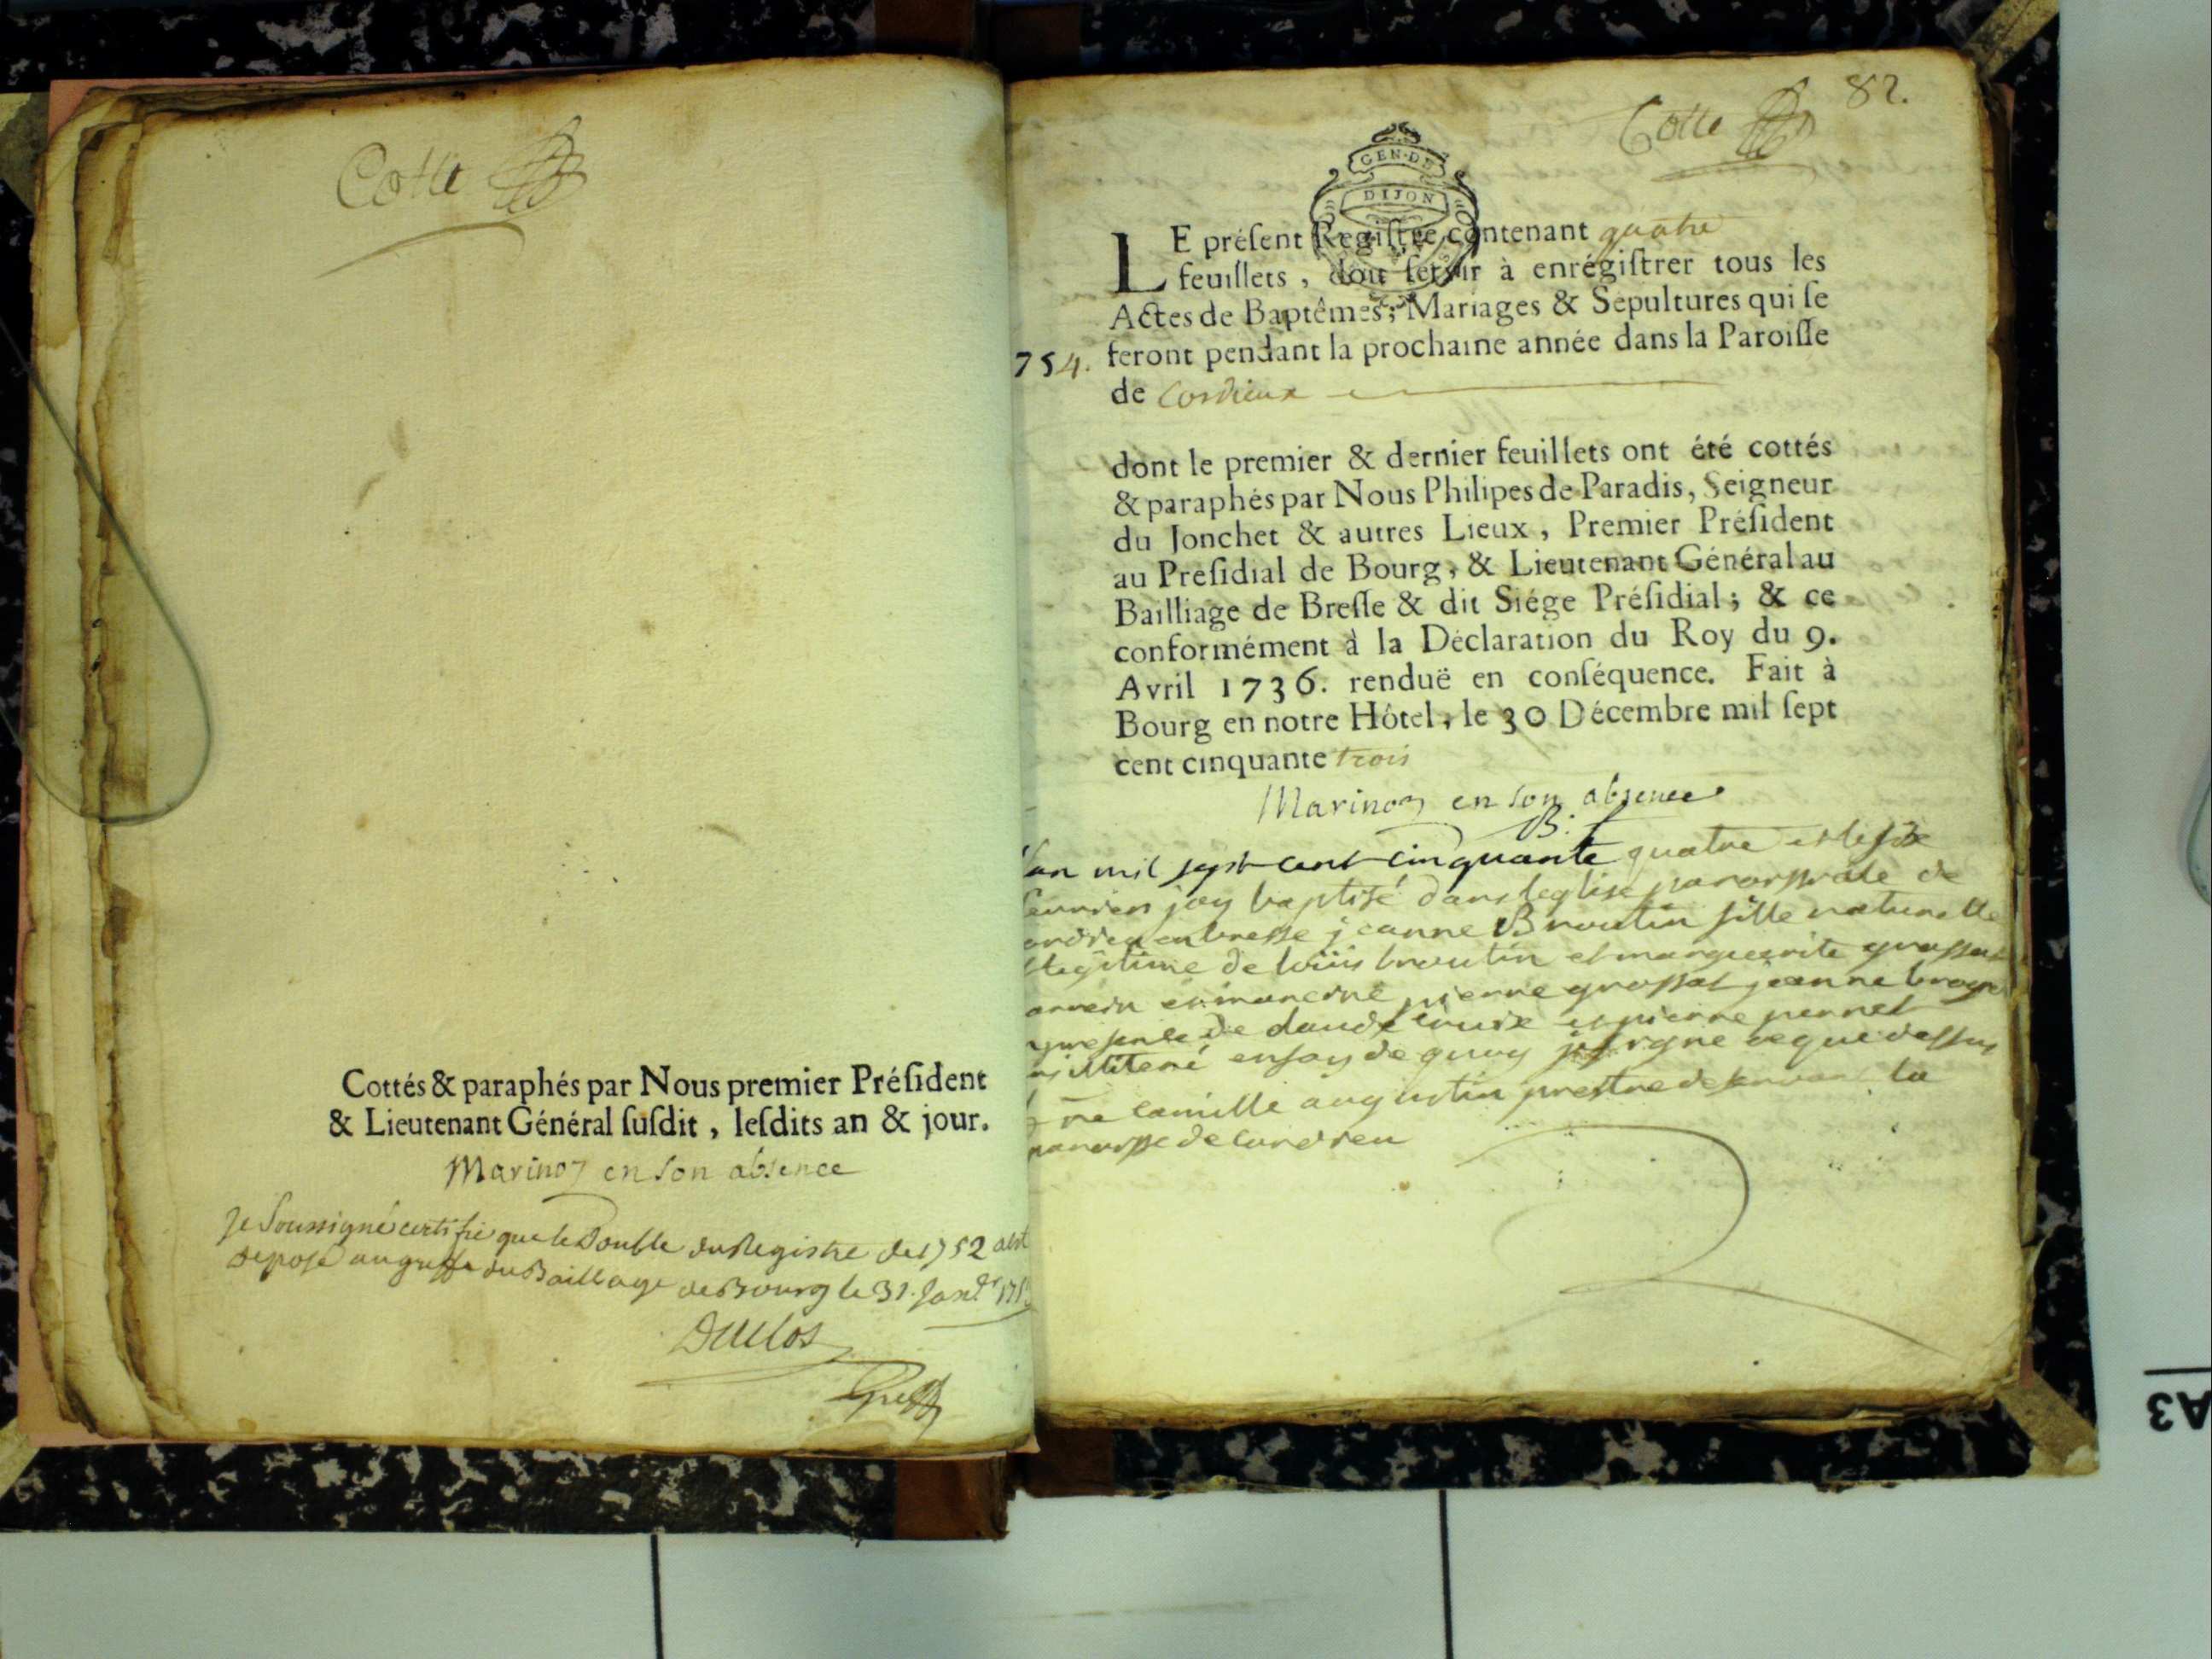 Cotté
Cottés & paraphés par Nous premier Préſident
& Lieutenant Général ſuſdit, leſdits an & jour.
Marinon en son absence
Je Soussigné certifie que le Double du Registre de 1752 a esté
deposé au greffe du Baillage de Bourg le 31. Janr
Duclos
Greff
82.
Cotté
GEN·DE
DIJON
LE préſent Regiſtre, contenant quatre
feuillets, doit ſervir à enrégiſtrer tous les
Actes de Baptêmes, Mariages & Sépultures qui ſe
754. feront pendant la prochaine année dans la Paroiſſe
de Cordieux
dont le premier & dernier feuillets ont été cottés
& paraphés par Nous Philipes de Paradis, Seigneur
du Jonchet & autres Lieux, Premier Préſident
au Préſidial de Bourg, & Lieutenant Général au
Bailliage de Breſſe & dit Siége Préſidial; & ce
conformément à la Déclaration du Roy du 9.
Avril 1736. renduë en conſéquence. Fait à
Bourg en notre Hôtel, le 30 Décembre mil ſept
cent cinquante trois
Marinon en son absence
B.
l'an mil sept cent cinquante quatre et le
fevrier jay baptisé dans leglise paroissiale de
en bresse jeanne Broutin fille naturelle
legitime de loüis broutin et marguerite grossat
et mareine pierre grossat jeanne
presence de claude et pierre perret
illiteré en foy de quoy jay signe ce que dessus
camille augustin prestre deservant la
paroisse de cordieu
A3